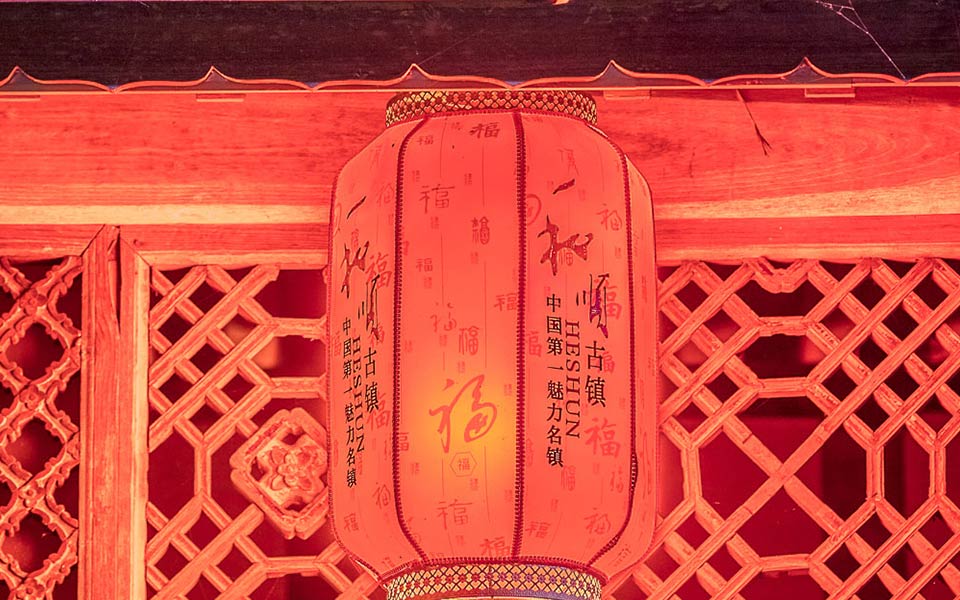 和顺
古镇
HESHUN
中国第一魅力名镇
福
福
和顺
古镇
HESHUN
中国第一魅力名镇